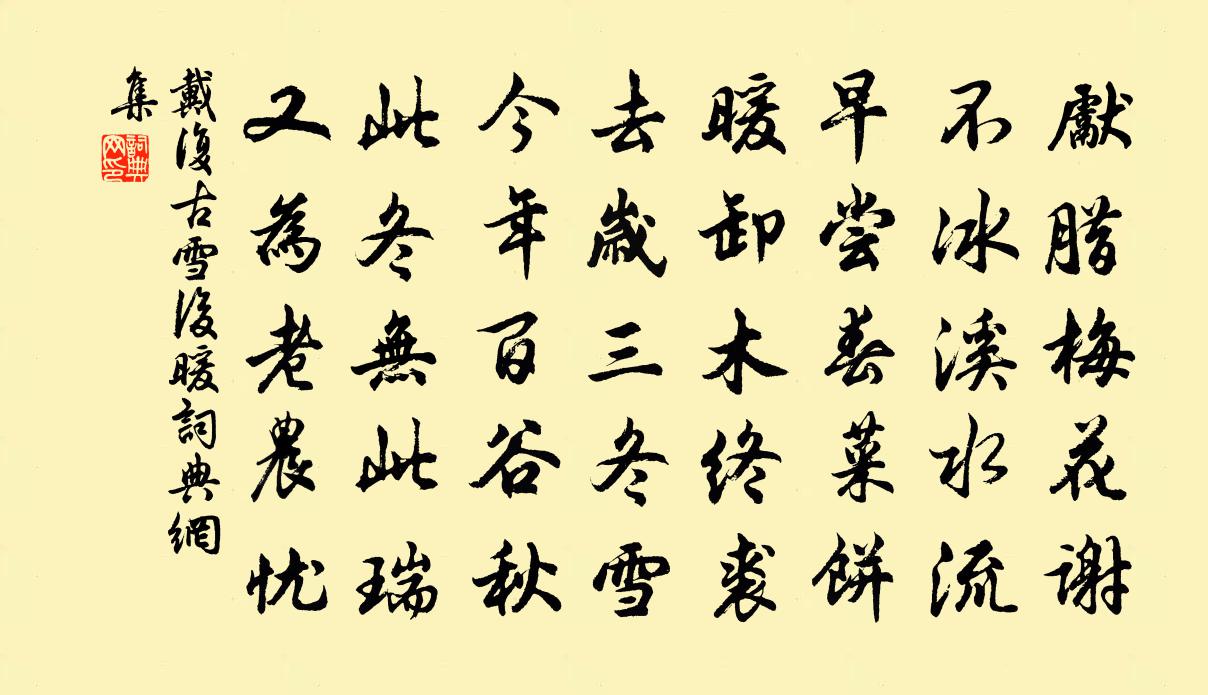 獻腊梅花谢
不冰溪水流
早尝春菜餅
暖卸木终裘
去歲三冬雪
今年百谷秋
此冬無此瑞
又為老農忧
戴復古雪後暖詞典網
集
詞典
网印